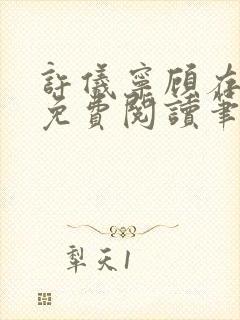 許儀寧顧存
免費閱讀筆
犁天1